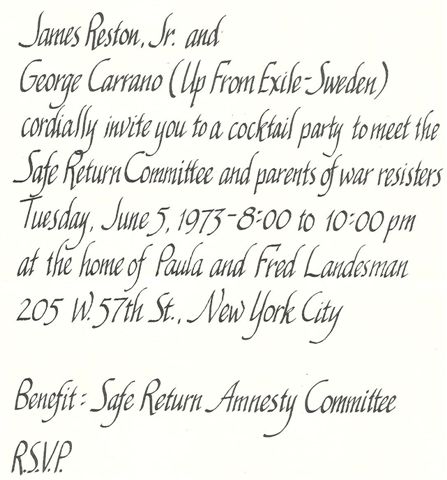 James Reston, Jr. and
George Carrano (Up From Exile-Sweden)
cordially invite you to a cocktail party to meet the
Safe Return Committee and parents of war resisters
Tuesday, June 5, 1973-8:00 to 10:00 pm
at the home of Paula and Fred Landesman
205 W. 57th St., New York City
Benefit: Safe Return Amnesty Committee
R.S.V.P.